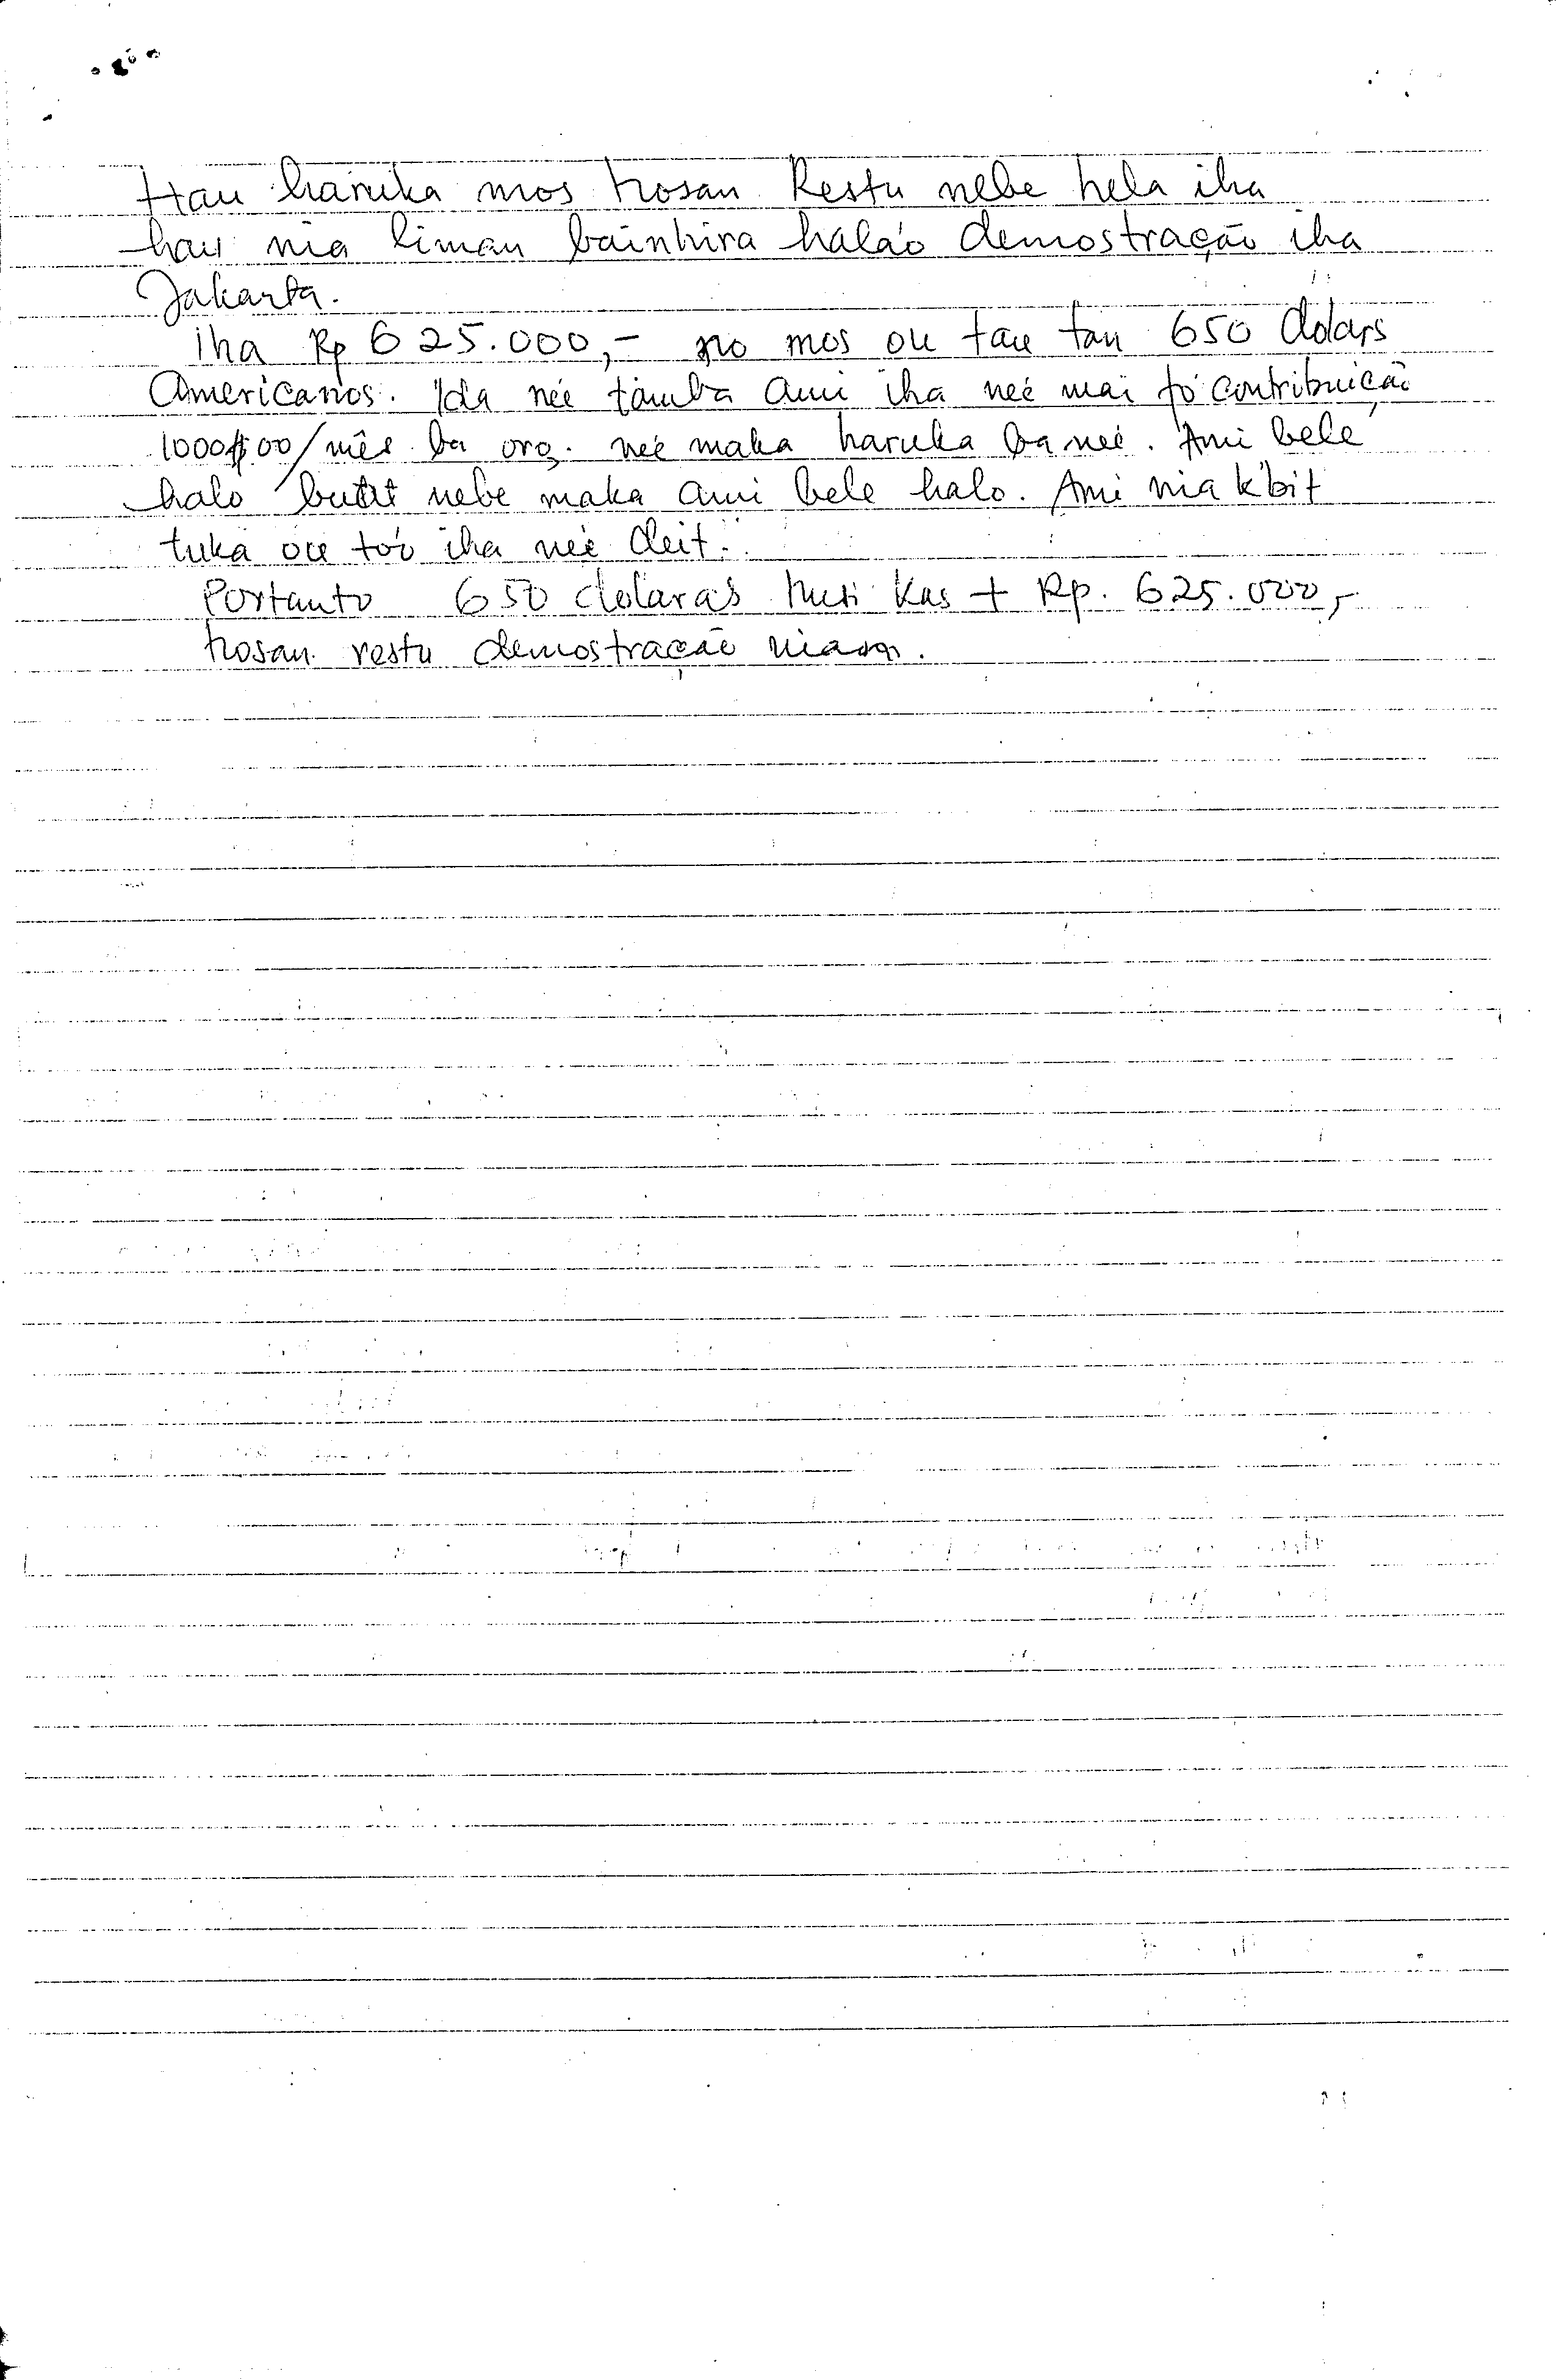 Hau haruka mos hosan Restu nebe hela iha
hau nia liman bainhira halaó demostração iha
Jakarta.
Iha Rp 625.000,- no mos ou tau tan 650 dolars
Americanos. Ida neé tamba Ami iha neé mai fó contribuição
1000$00/mês ba org. neé maka haruka ba neé. Ami bele
halo buat nebe maka Ami bele halo. Ami nia k'bit
tuka ou toó iha neé deit.
Portanto 650 dolaras husi Kas + Rp. 625.000,-
hosan restu demostração nian.